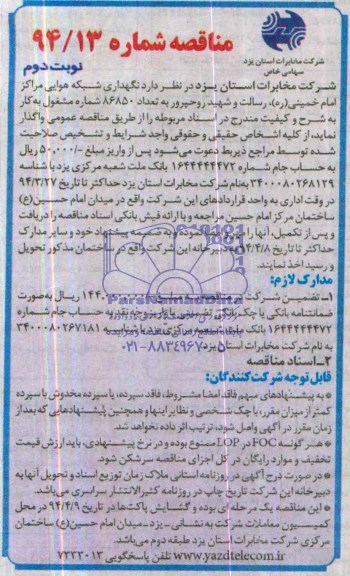 شرکت مخابرات استان یزد
سهامی خاص
مناقصه شماره ۹۴/۱۳
نوبت دوم
شرکت مخابرات استان یزد در نظر دارد نگهداری شبکه هوایی مراکز
امام خمینی(ره)، رسالت و شهید روحپرور به تعداد ۸۶۸۵۰ شماره مشغول به کار
به شرح و کیفیت مندرج در اسناد مربوطه را از طریق مناقصه عمومی واگذار
نماید، از کلیه اشخاص حقیقی و حقوقی واجد شرایط و تشخیص صلاحیت
شده توسط مراجع ذیربط دعوت می‌شود پس از واریز مبلغ -/۵۰۰۰۰۰ ریال
به حساب جام شماره ۱۶۴۴۴۴۴۴۷۲ بانک ملت شعبه مرکزی یزد با شناسه
۳۴۰۰۰۸۰۲۶۸۱۲۹ به‌نام شرکت مخابرات استان یزد حداکثر تا تاریخ ۹۴/۳/۲۷
در وقت اداری به واحد قراردادهای این شرکت واقع در میدان امام حسین(ع)
ساختمان مرکز امام حسین مراجعه و با ارائه فیش بانکی اسناد مناقصه را دریافت
و پس از تکمیل، آنها را به ضمیمه پیشنهاد خود و سایر مدارک
حداکثر تا تاریخ ۹۴/۴/۸ به دبیرخانه این شرکت واقع در ساختمان مذکور تحویل
و رسید اخذ نمایند.
مدارک لازم:
۱- تضمین شرکت در مناقصه ریال به‌صورت
ضمانتنامه بانکی یا چک بانکی تضمینی یا واریز وجه نقد به حساب جام شماره
۱۶۴۴۴۴۴۴۷۲ بانک ملت شعبه مرکزی یزد با شناسه ۳۴۰۰۰۸۰۲۶۷۱۸۱
به نام شرکت مخابرات استان یزد
۲- اسناد مناقصه
۰۲۱-۸۸۳۴۹۶۷۰-۵
ParsNamadData
قابل توجه شرکت‌کنندگان:
* به پیشنهادهای مبهم، فاقد امضا، مشروط، فاقد سپرده، یا سپرده مخدوش یا سپرده
کمتر از میزان مقرر، یا چک شخصی و نظایر اینها و همچنین پیشنهادهایی که بعد از
زمان مقرر در آگهی واصل شود، ترتیب اثر داده نخواهد شد.
* هر گونه FOC در LOP ممنوع بوده و در نرخ پیشنهادی، باید ارزش قیمت
تخفیف و موارد رایگان در کل اجزای مناقصه سرشکن شود.
* در صورت درج آگهی در روزنامه استانی ملاک زمان توزیع اسناد و تحویل آنها به
دبیرخانه این شرکت تاریخ چاپ در روزنامه کثیرالانتشار سراسری می‌باشد.
* این مناقصه یک مرحله‌ای بوده و گشایش پاکت‌ها در تاریخ ۹۴/۴/۹ در محل
کمیسیون معاملات شرکت به نشانی - یزد - میدان امام حسین(ع) ساختمان
مرکزی شرکت مخابرات استان یزد طبقه دوم می‌باشد.
www.yazdtelecom.ir تلفن پاسخگویی ۷۲۳۳۰۱۳